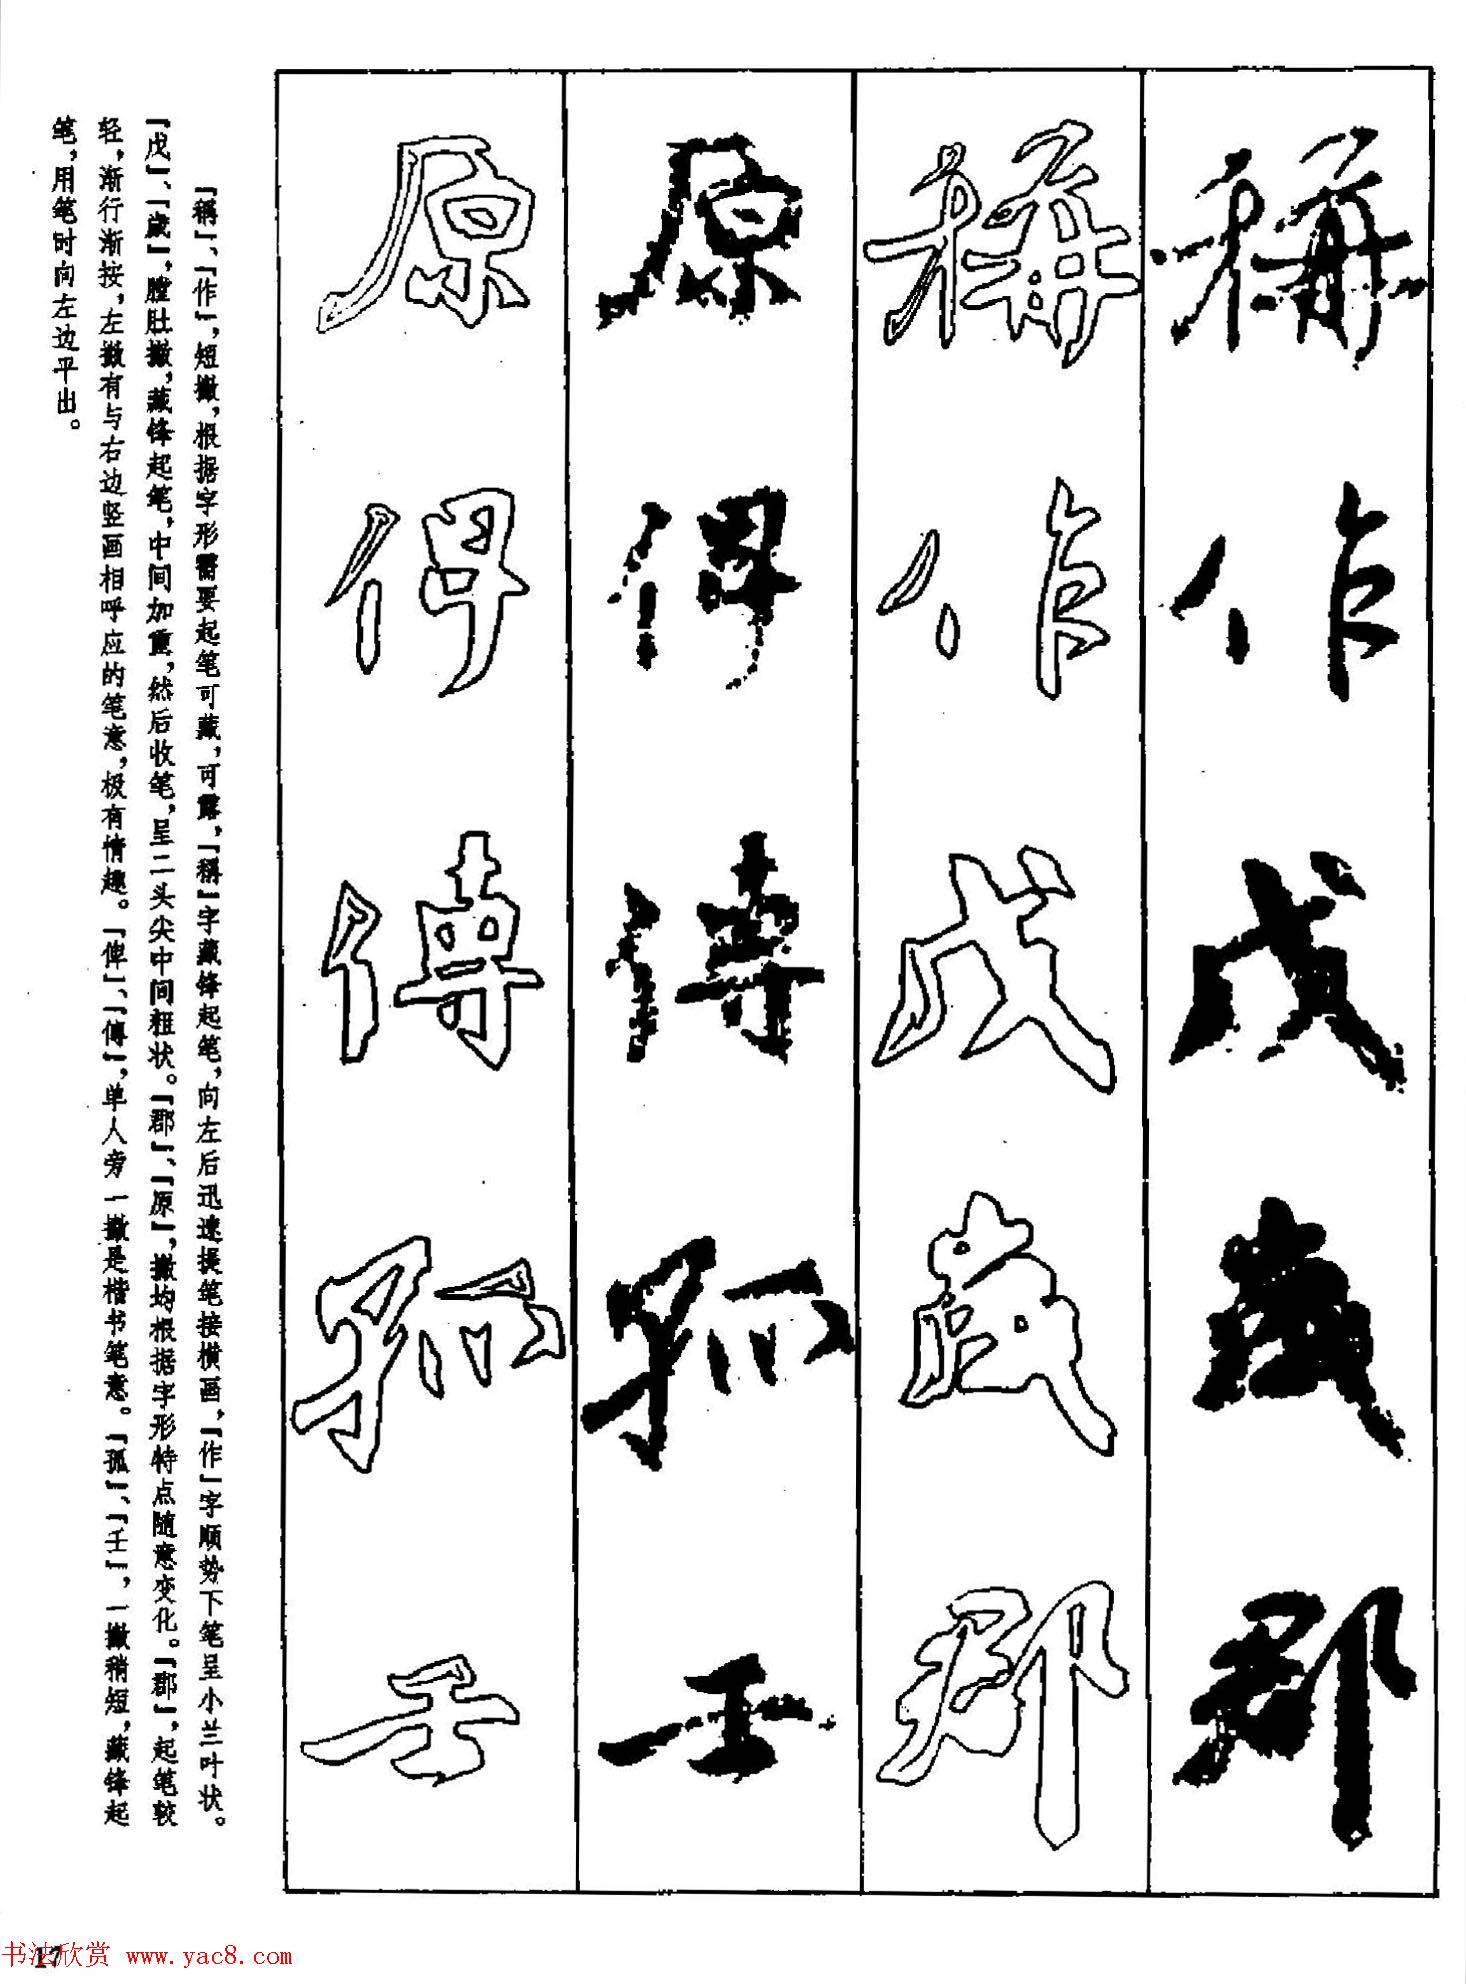 稱作戊歲郡
稱作戊歲郡
原俾傅孤壬
原俾傅孤壬
「稱」、「作」，短撇，根据字形需要起笔可藏，可露，「稱」字藏锋起笔，向左后迅速提笔接横画，「作」字顺势下笔呈小兰叶状。
「戊」、「歲」，膛肚撇，藏锋起笔，中间加重，然后收笔，呈二头尖中间粗状。「郡」、「原」，撇均根据字形特点随意变化。「郡」，起笔较
轻，渐行渐按，左撇有与右边竖画相呼应的笔意，极有情趣。「俾」、「傅」，单人旁一撇是楷书笔意。「孤」、「壬」，一撇稍短，藏锋起
笔，用笔时向左边平出。
17
书法欣赏 www.yac8.com